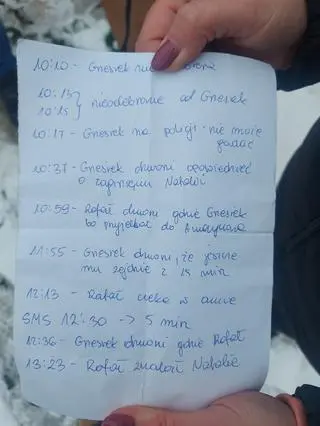 10:10 - Gnesiek nie
10:13
10:15 } nieodebrane od Gnesiek
10:17 - Gnesiek na policji - nie może gadać
10:37 - Gnesiek dzwoni opowiedzieć
o zaginięciu Natalii
10:59 - Rafał dzwoni gdzie Gnesiek
bo przyjechał do
11:55 - Gnesiek dzwoni, że jeszcze
mu zejdzie z 15 min
12:13 - Rafał czeka w aucie
SMS 12:30 -> 5 min
12:36 - Gnesiek dzwoni gdzie Rafał
13:23 - Rafał znalazł Natalię